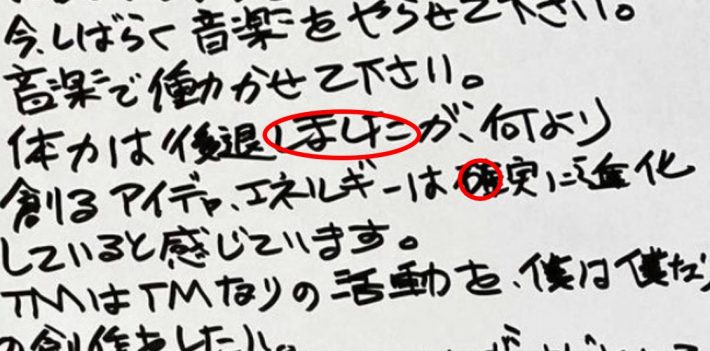 今しばらく音楽をやらせて下さい。
音楽で働かせて下さい。
体力は後退しましたが、何より
創るアイデア、エネルギーは確実に進化
していると感じています。
TMはTMなりの活動を、僕は僕なり
の創作をしたい。